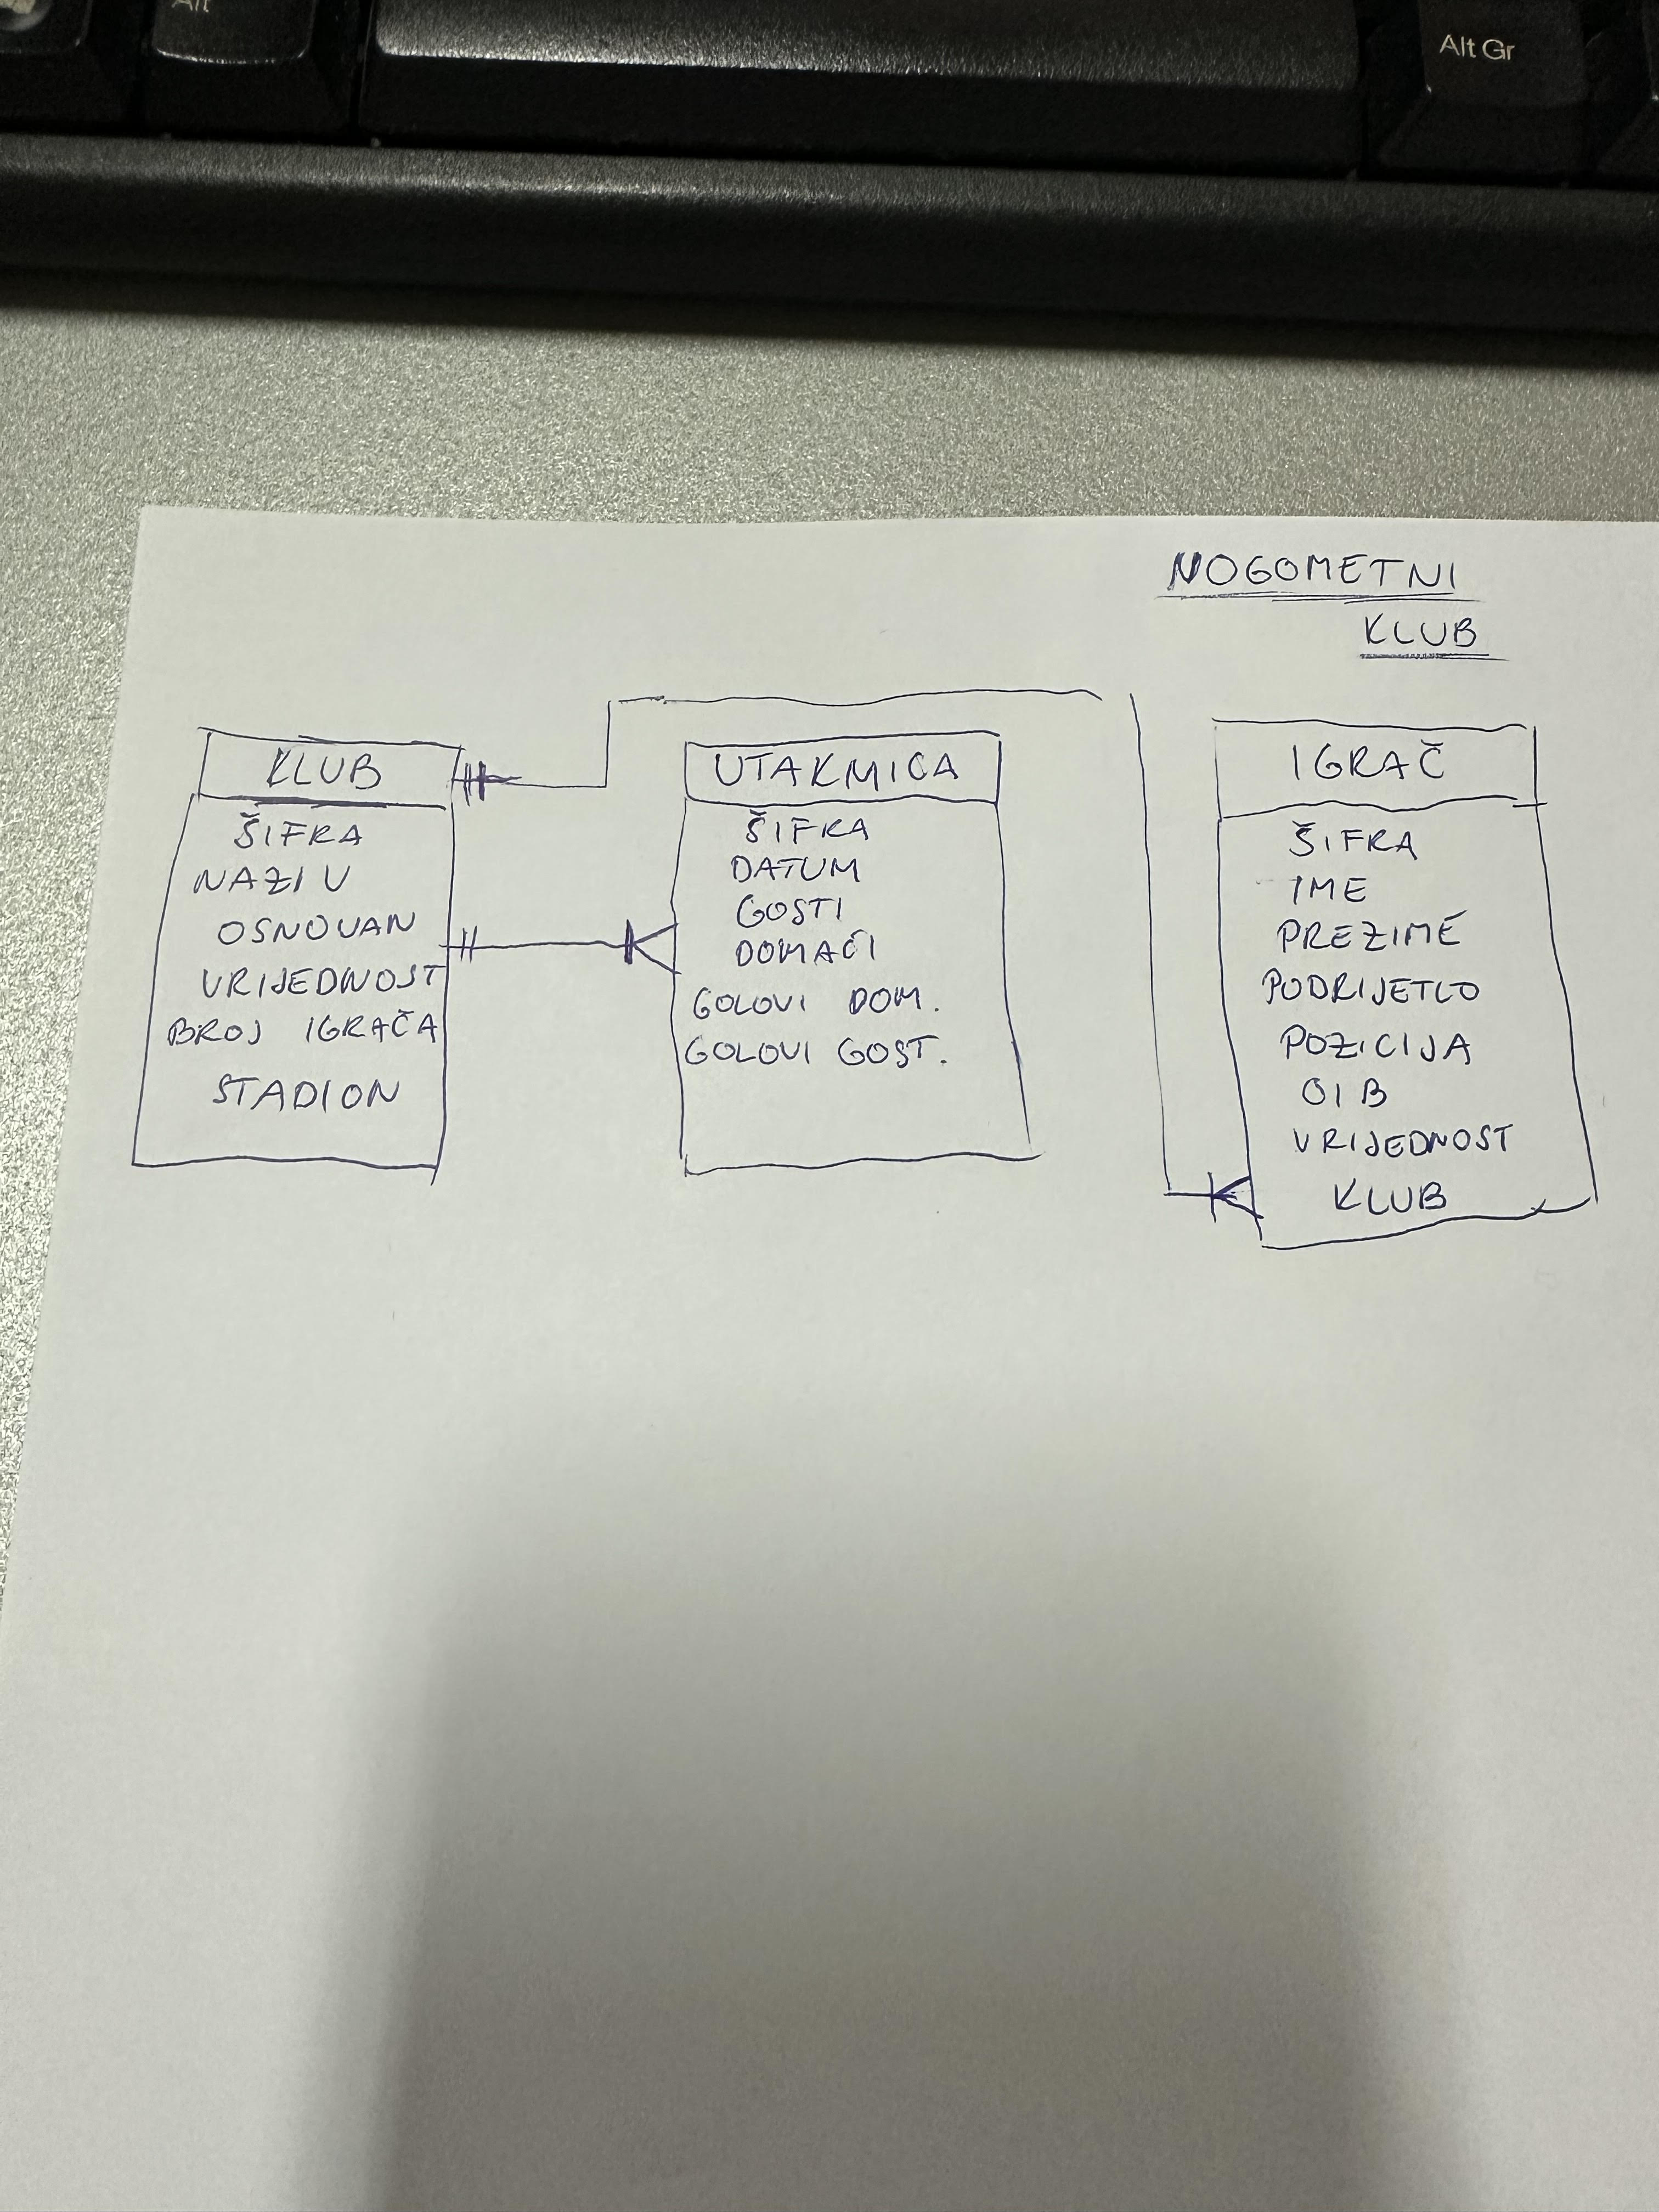 Alt
Alt Gr
NOGOMETNI
KLUB
KLUB
ŠIFRA
NAZIV
OSNOVAN
VRIJEDNOST
BROJ IGRAČA
STADION
UTAKMICA
ŠIFRA
DATUM
GOSTI
DOMAĆI
GOLOVI DOM.
GOLOVI GOST.
IGRAČ
ŠIFRA
IME
PREZIME
PODRIJETLO
POZICIJA
OIB
VRIJEDNOST
KLUB